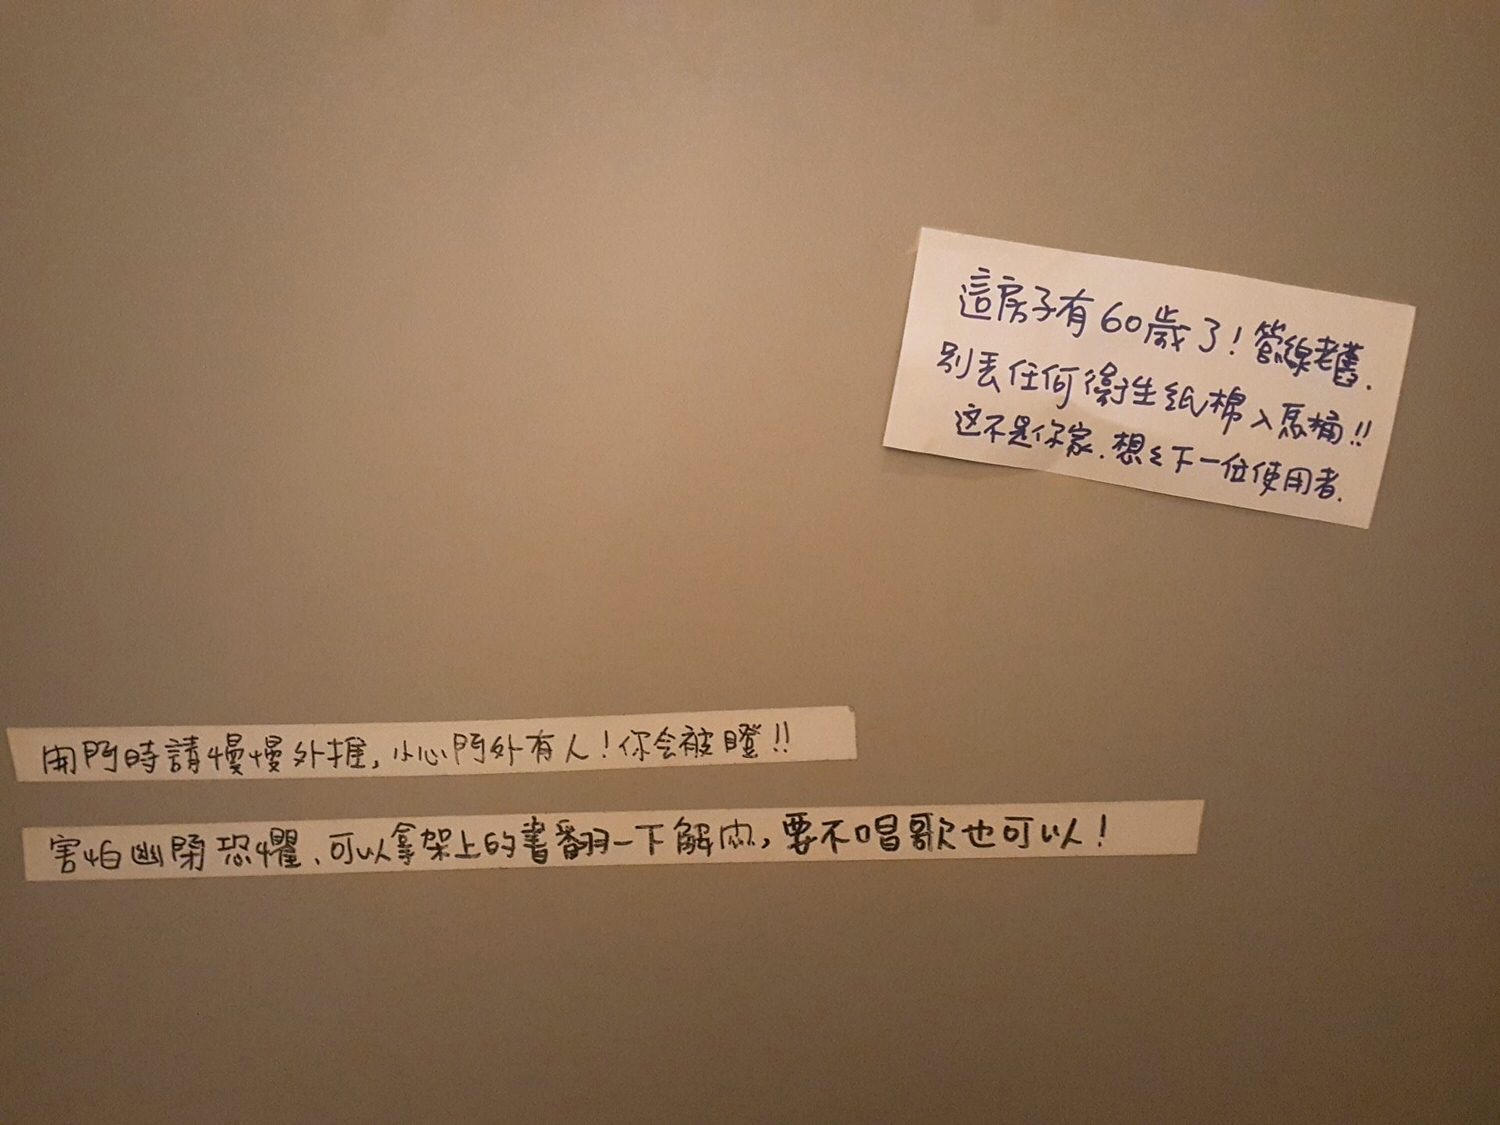 這房子有60歲了！管線老舊.
別丟任何衛生紙棉入馬桶！！
这不是你家.想々下一位使用者.
開門時請慢慢外推,小心門外有人！你会被瞪！！
害怕幽閉恐懼、可以拿架上的書翻一下解悶,要不唱歌也可以！